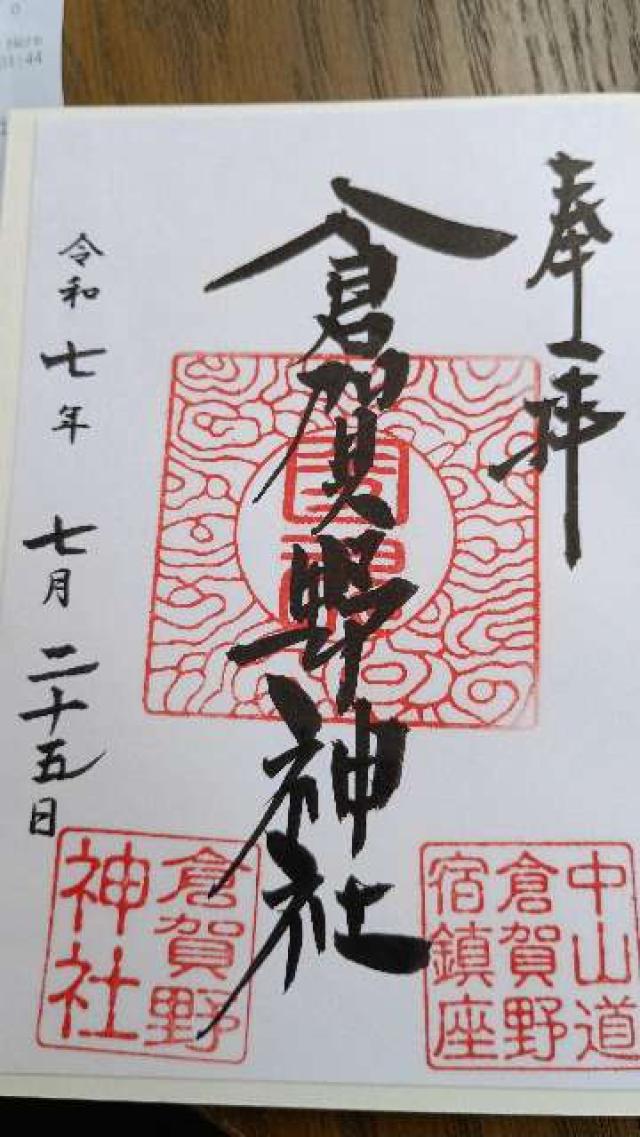 奉拝
倉賀野神社
令和七年 七月二十五日
中山道
倉賀野
宿鎮座
倉賀野
神社